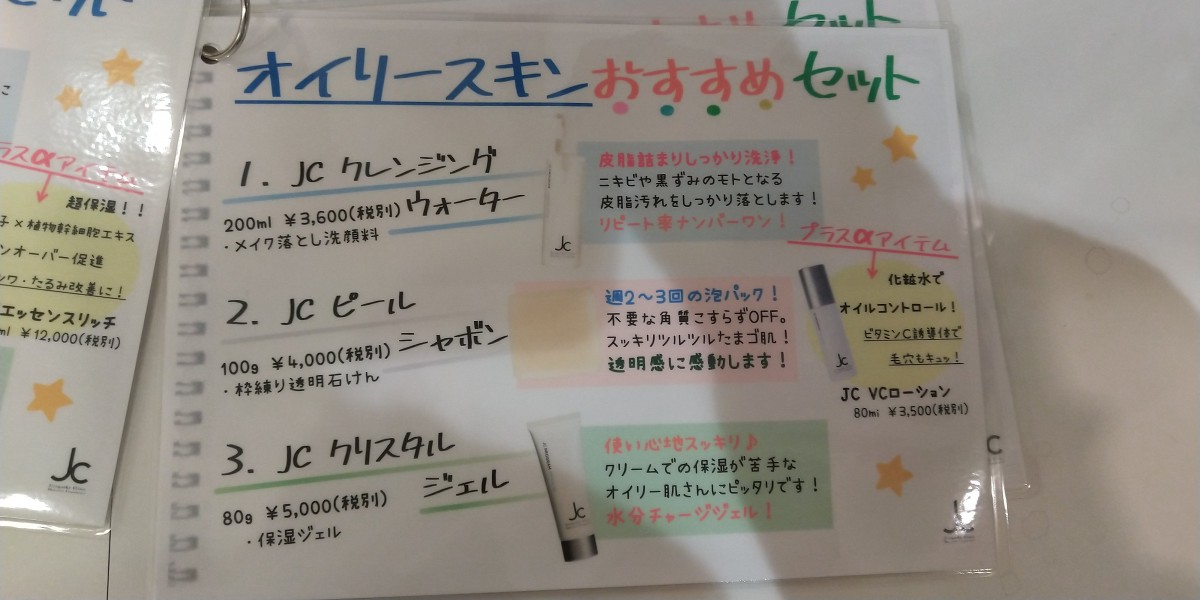 オイリースキンおすすめセット
1. JC クレンジング
ウォーター
200ml ￥3,600(税別)
・メイク落とし洗顔料
皮脂詰まりしっかり洗浄！
ニキビや黒ずみのモトとなる
皮脂汚れをしっかり落とします！
リピート率ナンバーワン！
2. JC ピール
シャボン
100g ￥4,000(税別)
・枠練り透明石けん
週2～3回の泡パック！
不要な角質こすらずOFF。
スッキリツルツルたまゴ肌！
透明感に感動します！
3. JC クリスタル
ジェル
80g ￥5,000(税別)
・保湿ジェル
使い心地スッキリ♪
クリームでの保湿が苦手な
オイリー肌さんにピッタリです！
水分チャージジェル！
プラスαアイテム
化粧水で
オイルコントロール！
ビタミンC誘導体で
毛穴もキュッ！
JC VCローション
80ml ￥3,500(税別)
Jc
Jc
Jc
Jc
ラスαアイテム
超保湿！！
子×植物幹細胞エキス
ンオーバー促進
ワ・たるみ改善に！
エッセンスリッチ
ml ￥12,000(税別)
Jc
セット